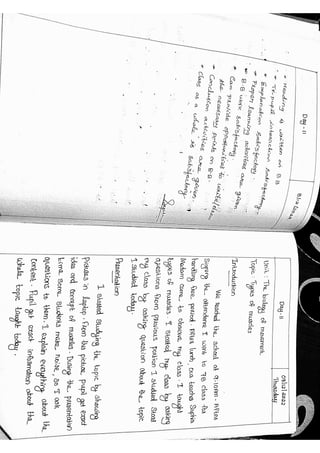 Day-11
• Heading is written on B.B
• Tr-pupil interaction satisfactory
• Explanation satisfactory
• Proper learning activities are given
• B.B work satisfactory
• Can provide opportunities to write
the necessary points on B.B.
• Conclusion activities are given.
• Class as a whole is satisfactory
Day-11
Thursday
Unit: The biology of movement
Topic: Types of muscles
Introduction
We reached the school at 9.00am. After
signing the attendance I went to 7B class. As
period. After lunch our teacher
Madam came, to observe my class. I taught
types of muscles. I started my class by asking
questions from previous portion I studied. Start
my class by asking question about the topic
I studied today.
Presentation
I started studying the topic by showing
pictures in laptop. From this picture pupil get exact
idea and concept of muscles. During the presentation
time some students make noise, so I ask
questions to them. I explain everything about the
content. Pupil get exact information about the
whole topic taught today.